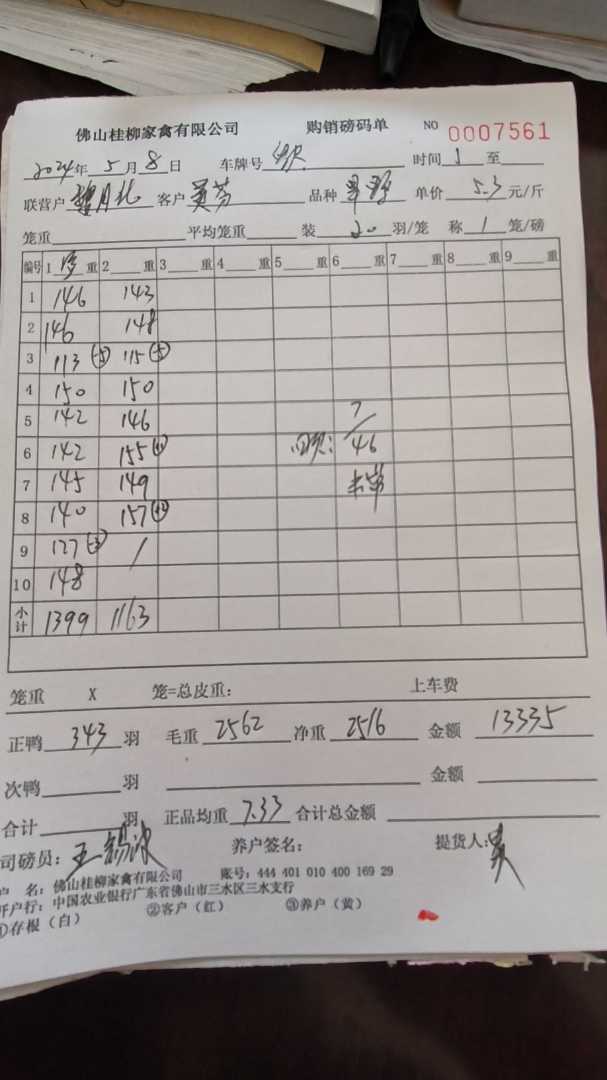 佛山桂柳家禽有限公司 购销磅码单 NO 0007561
2024年 5月 8日 车牌号 时间 1 至
联营户 客户 黄芬 品种 单价 5.3 元/斤
笼重 平均笼重 装 20 羽/笼 称 1 笼/磅
编号 1 重 2 重 3 重 4 重 5 重 6 重 7 重 8 重 9 重
1 146 143
2 146 148
3 113 (-5) 115 (-5)
4 150 150
5 142 146 7
6 142 155 (+1) 回贝: 46
7 145 149
8 140 157 (+2)
9 127 (-3) /
10 148
小计 1399 1163
笼重 X 笼=总皮重: 上车费
正鸭 343 羽 毛重 2562 净重 2516 金额 13335
次鸭 羽 金额
合计 羽 正品均重 7.33 合计总金额
司磅员: 王锡波 养户签名: 提货人: 吴
户 名: 佛山桂柳家禽有限公司 账号: 444 401 010 400 169 29
开户行: 中国农业银行广东省佛山市三水区三水支行
①存根（白） ②客户（红） ③养户（黄）